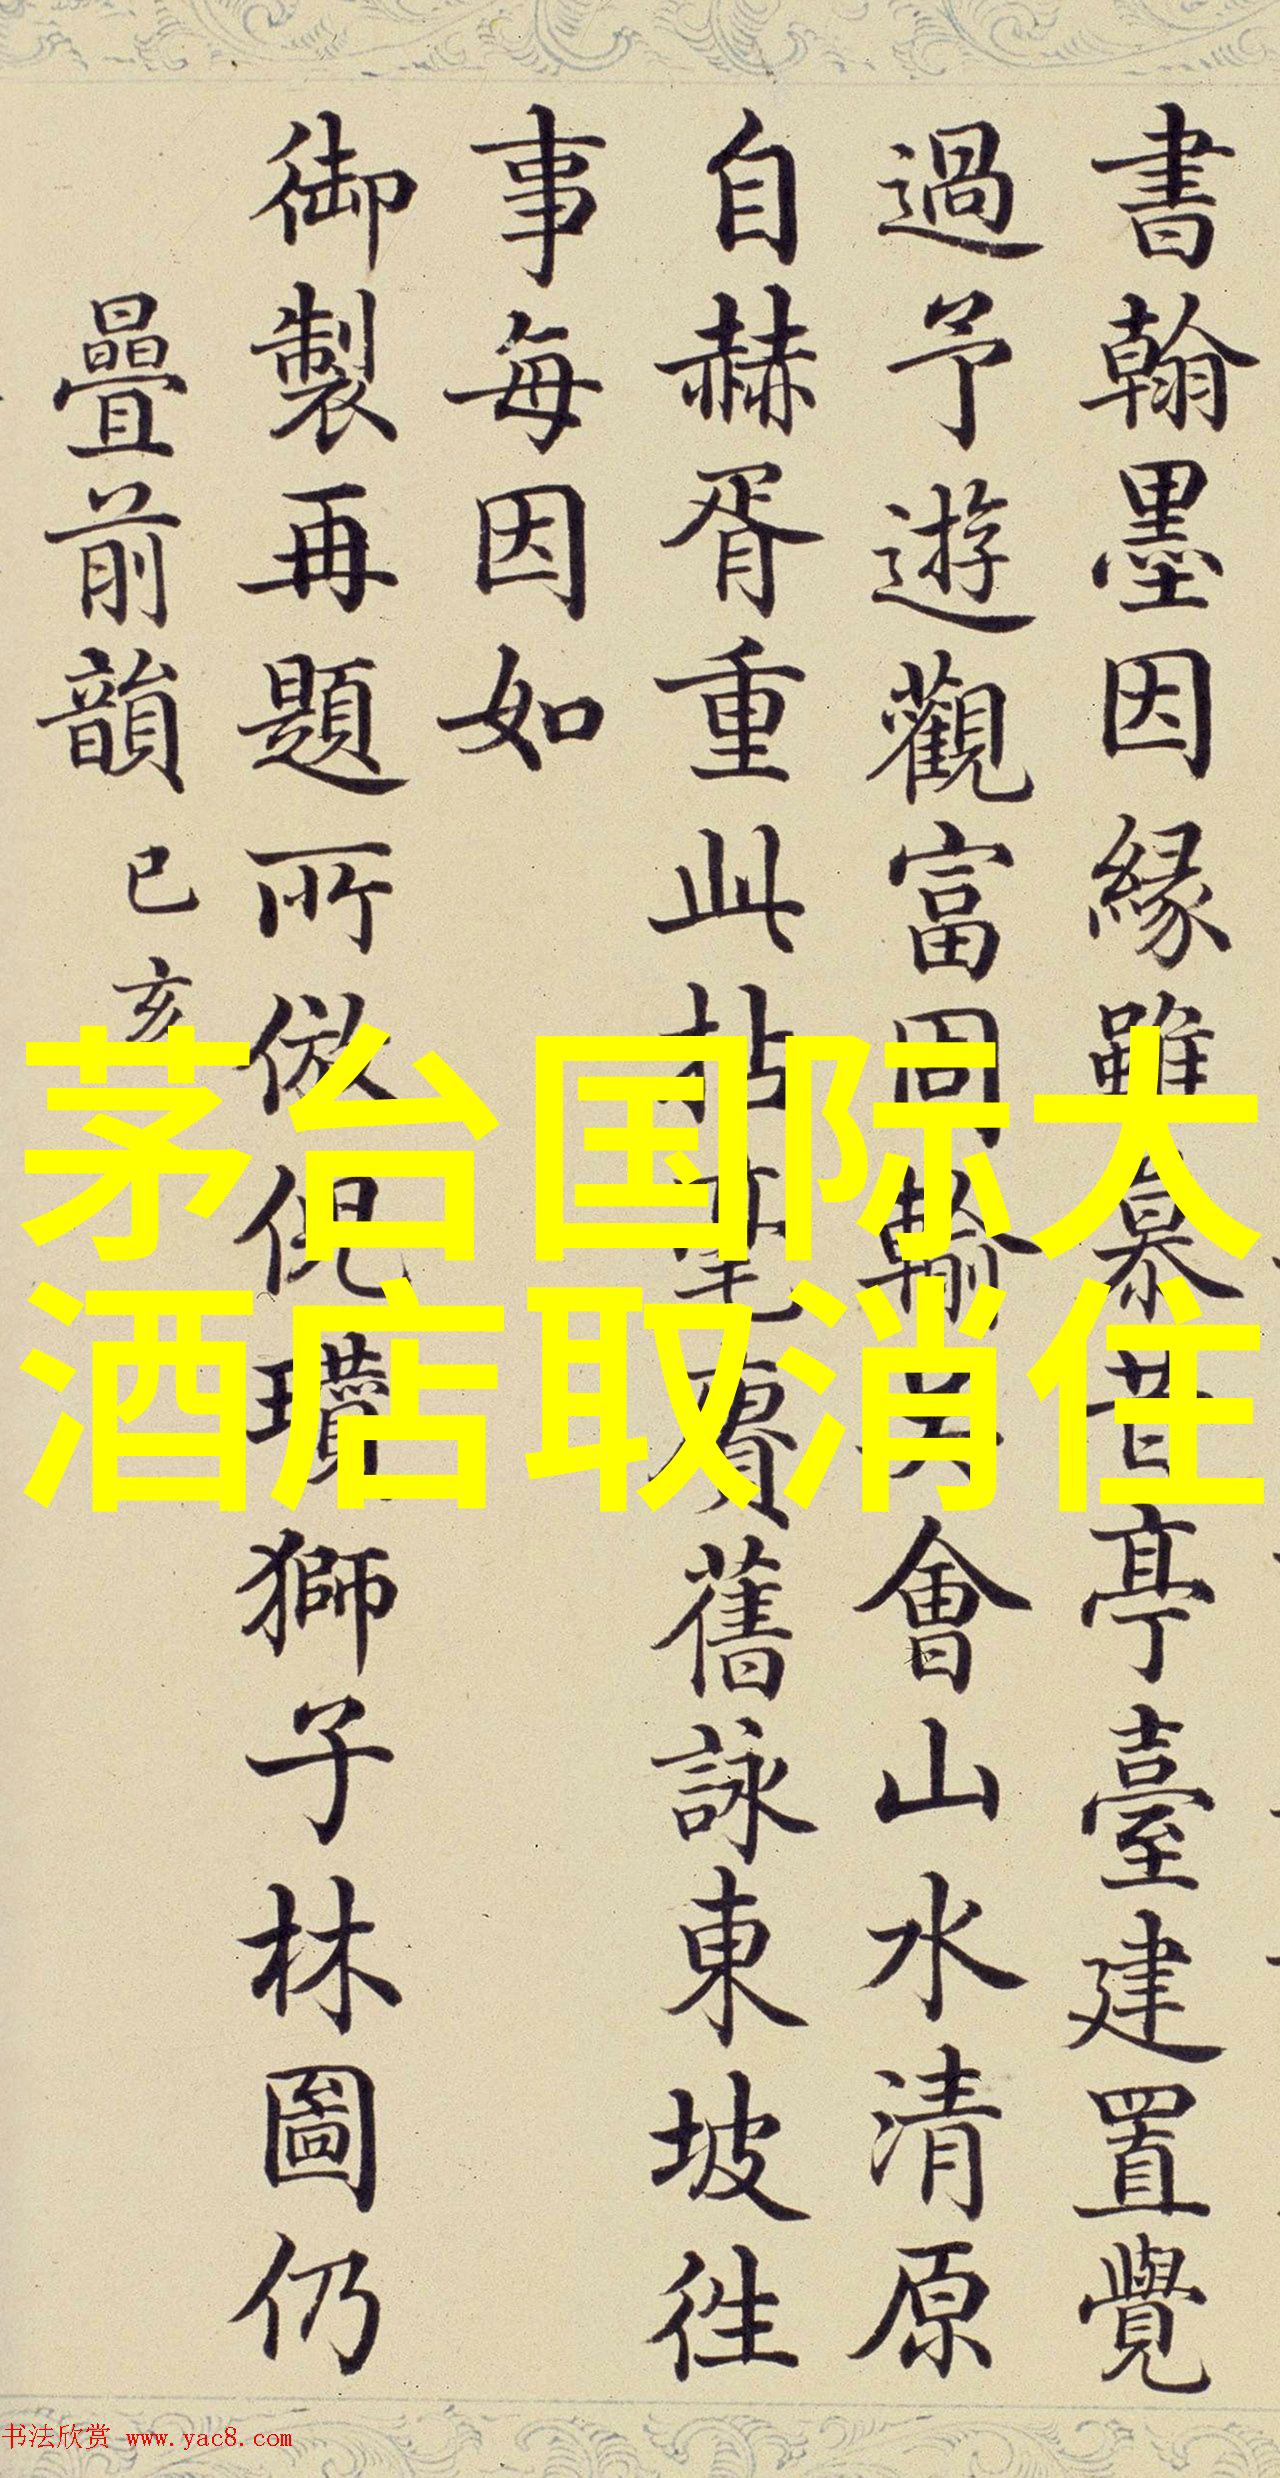 書翰墨因緣雖慕昔亭臺建置覺
過予遊觀富周輸吳會山水清原
自赫胥重此拈毫賡舊詠東坡徃
事每因如
御製再題所倣倪瓚獅子林圖仍
疊前韻 己亥
茅台国际大
酒店取消住
书法欣赏 www.yac8.com